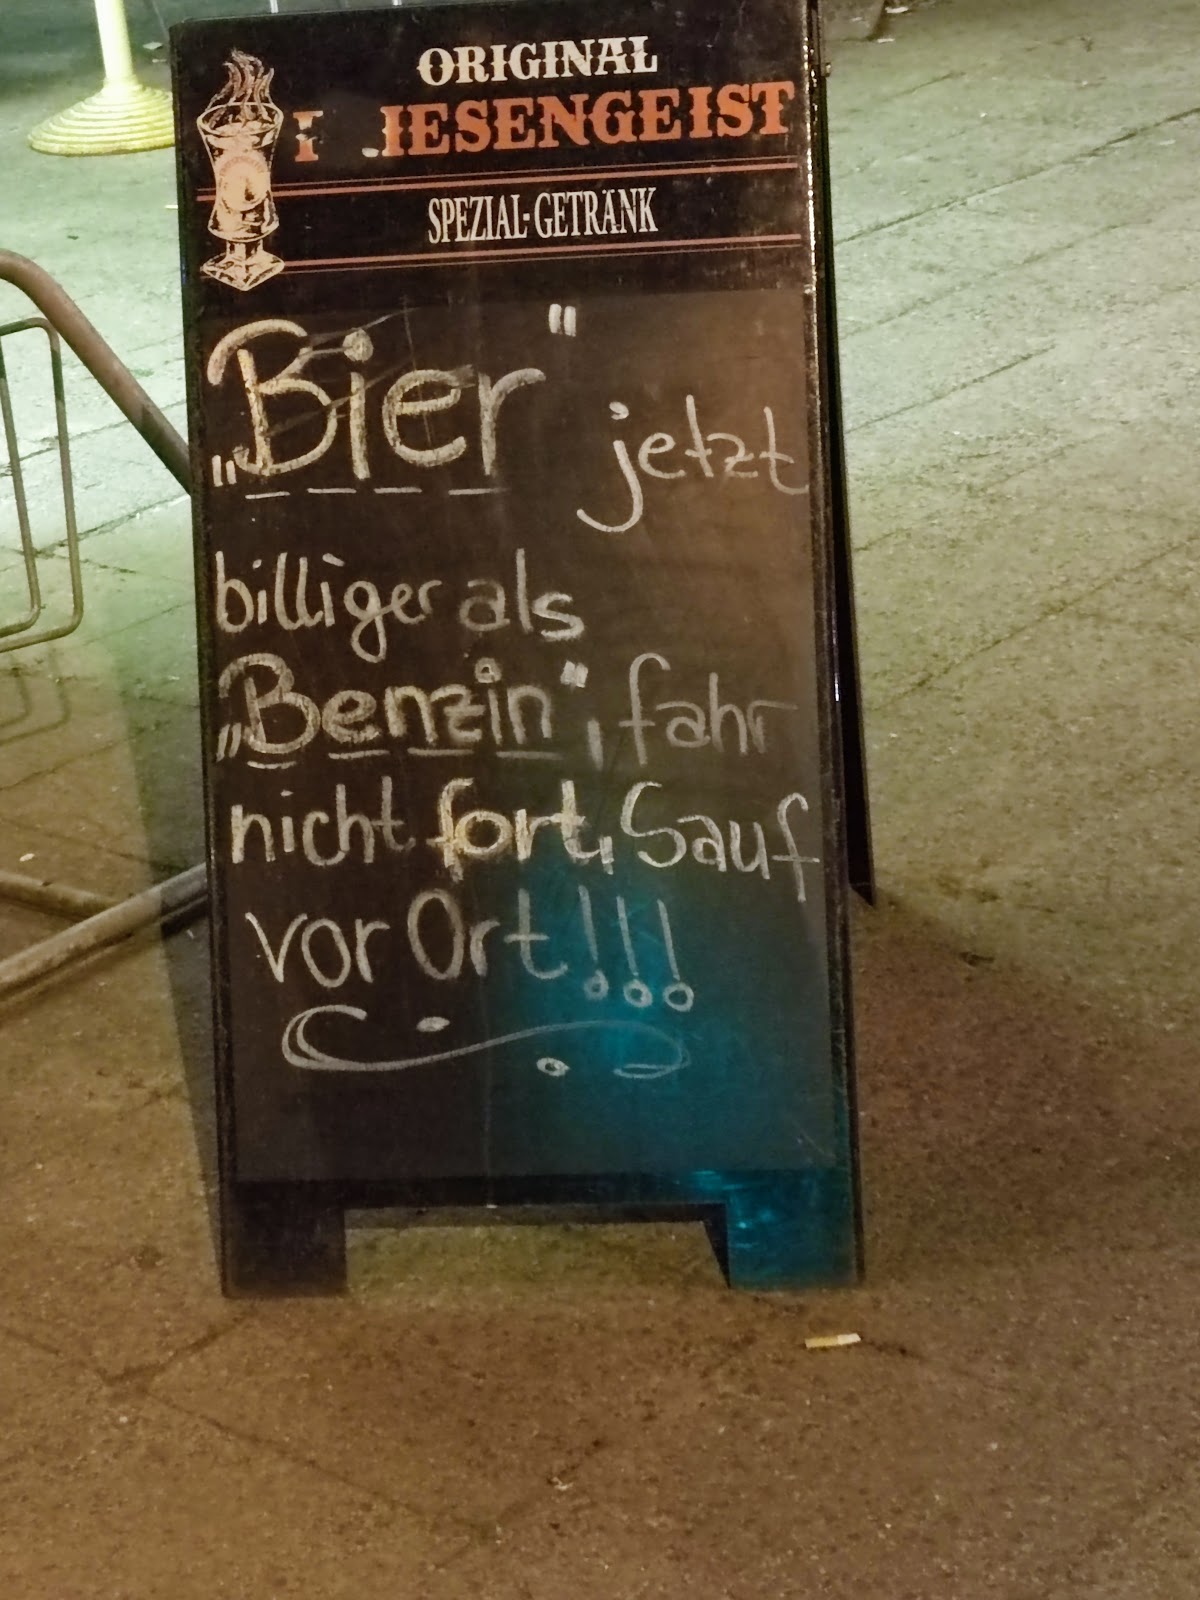 ORIGINAL
IESENGEIST
SPEZIAL-GETRÄNK
„Bier" jetzt
billiger als
„Benzin", fahr
nicht fort, Sauf
vor Ort!!!